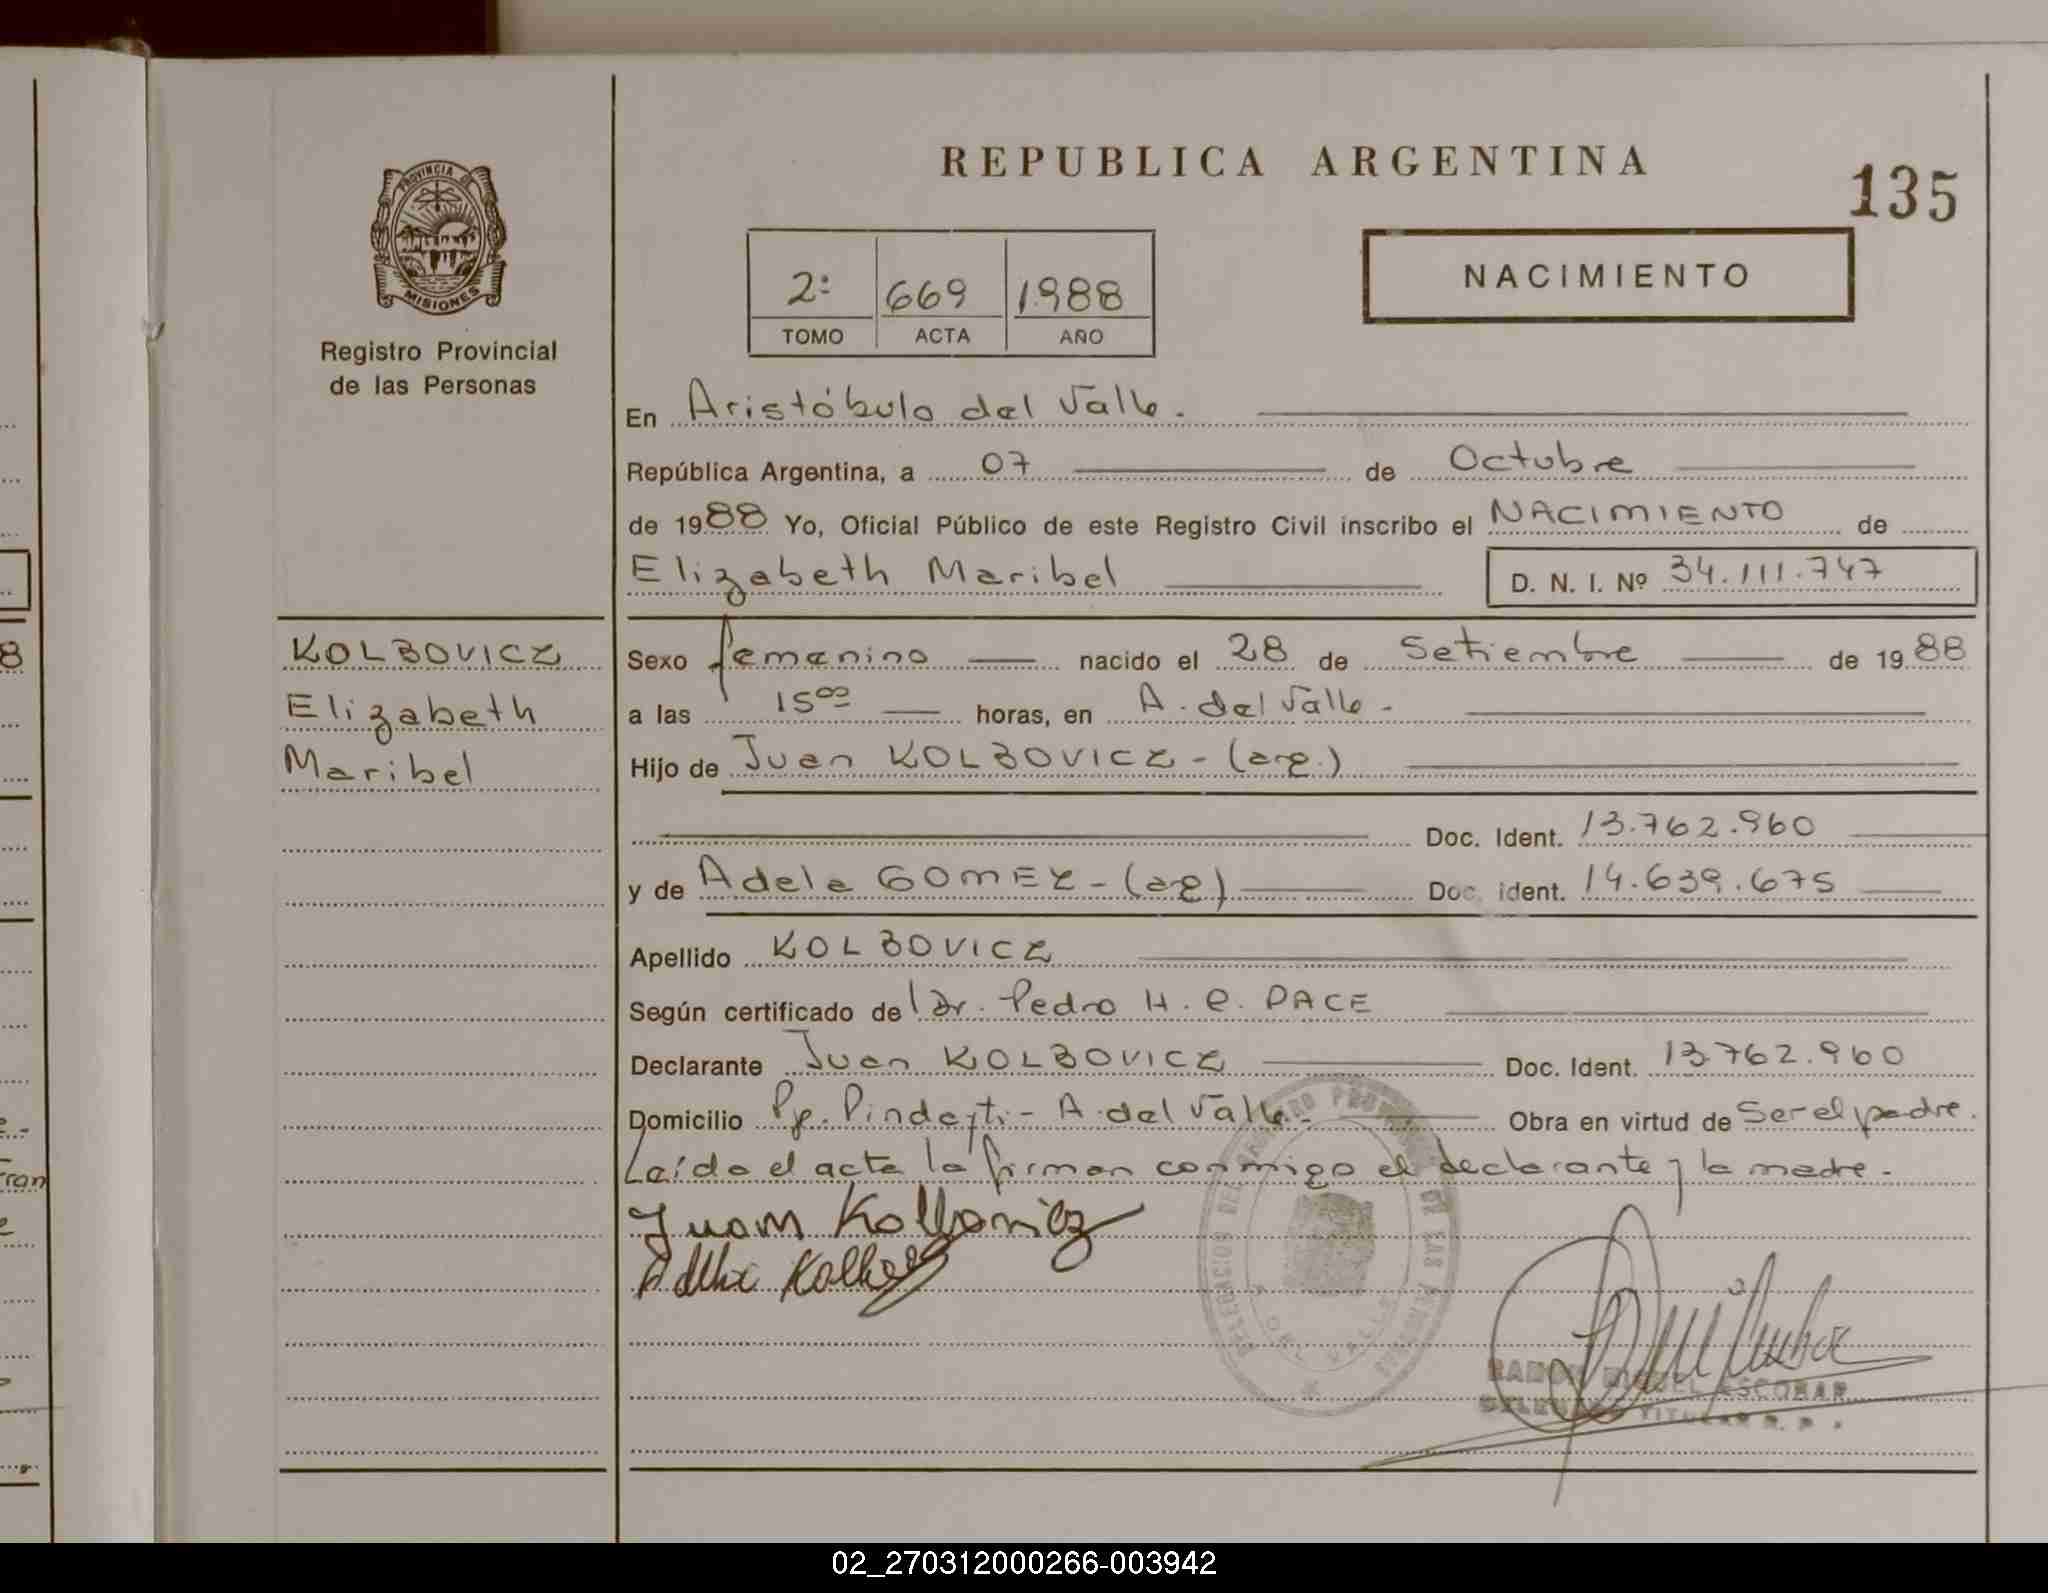 REPUBLICA ARGENTINA
135
PROVINCIA DE
MISIONES
Registro Provincial
de las Personas
2º 669 1988
TOMO ACTA AÑO
NACIMIENTO
En Aristóbulo del Valle.
República Argentina, a 07 de Octubre
de 1988 Yo, Oficial Público de este Registro Civil inscribo el NACIMIENTO de
Elizabeth Maribel D. N. I. Nº 34.111.747
KOLBOVICZ
Elizabeth
Maribel
Sexo femenino nacido el 28 de Setiembre de 1988
a las 15 00 horas, en A. del Valle -
Hijo de Juan KOLBOVICZ - (arg.)
Doc. Ident. 13.762.960
y de Adela GOMEZ - (arg) Doc. ident. 14.639.675
Apellido KOLBOVICZ
Según certificado de Dr. Pedro H. C. PACE
Declarante Juan KOLBOVICZ Doc. Ident. 13.762.960
Domicilio Pje. Pindayti - A. del Valle - Obra en virtud de Ser el padre.
Leída el acta la firman conmigo el declarante y la madre -
Juam Kolbovicz
DELEGACION DEL REGISTRO PROVINCIAL DE LAS PERSONAS
A. DEL VALLE
RAMON MIGUEL ESCOBAR
DELEGADO TITULAR R. P. P.
8
ran
02_270312000266-003942